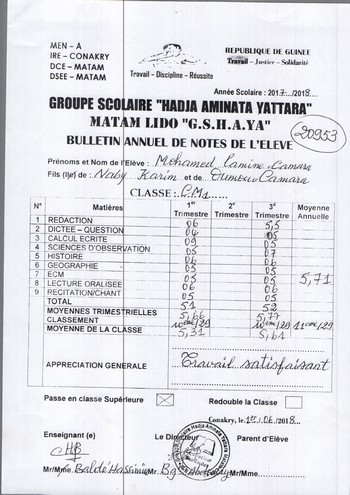 MEN – A
IRE – CONAKRY
DCE – MATAM
DSEE – MATAM
REPUBLIQUE DE GUINEE
Travail – Justice – Solidarité
Travail – Discipline – Réussite
Année Scolaire : 2017.../2018...
GROUPE SCOLAIRE "HADJA AMINATA YATTARA"
MATAM LIDO "G.S.H.A.YA"
BULLETIN ANNUEL DE NOTES DE L'ELEVE
20953
Prénoms et Nom de l'Elève : Mohamed Lamine Camara
Fils (lle) de : Naby Karim et de Oumou Camara
CLASSE : CM1
N° Matières 1er Trimestre 2e Trimestre 3e Trimestre Moyenne Annuelle
1 REDACTION 06 5,5
2 DICTEE – QUESTION 04 05
3 CALCUL ECRITE 09 05
4 SCIENCES D'OBSERVATION 05 05
5 HISTOIRE 05 07
6 GEOGRAPHIE 06 06
7 ECM 05 05 5,71
8 LECTURE ORALISEE 05 05
9 RECITATION/CHANT 06 05
TOTAL 51 52
MOYENNES TRIMESTRIELLES 5,66 5,77
CLASSEMENT 10ème/29 10ème/29 11ème/29
MOYENNE DE LA CLASSE 5,31 5,61
APPRECIATION GENERALE Travail satisfaisant
Passe en classe Supérieure
Redouble la Classe
Conakry, le 1er/06/2018
Enseignant (e) Le Directeur Parent d'Elève
Mr/Mme Baldé Mr/Mme Mr/Mme